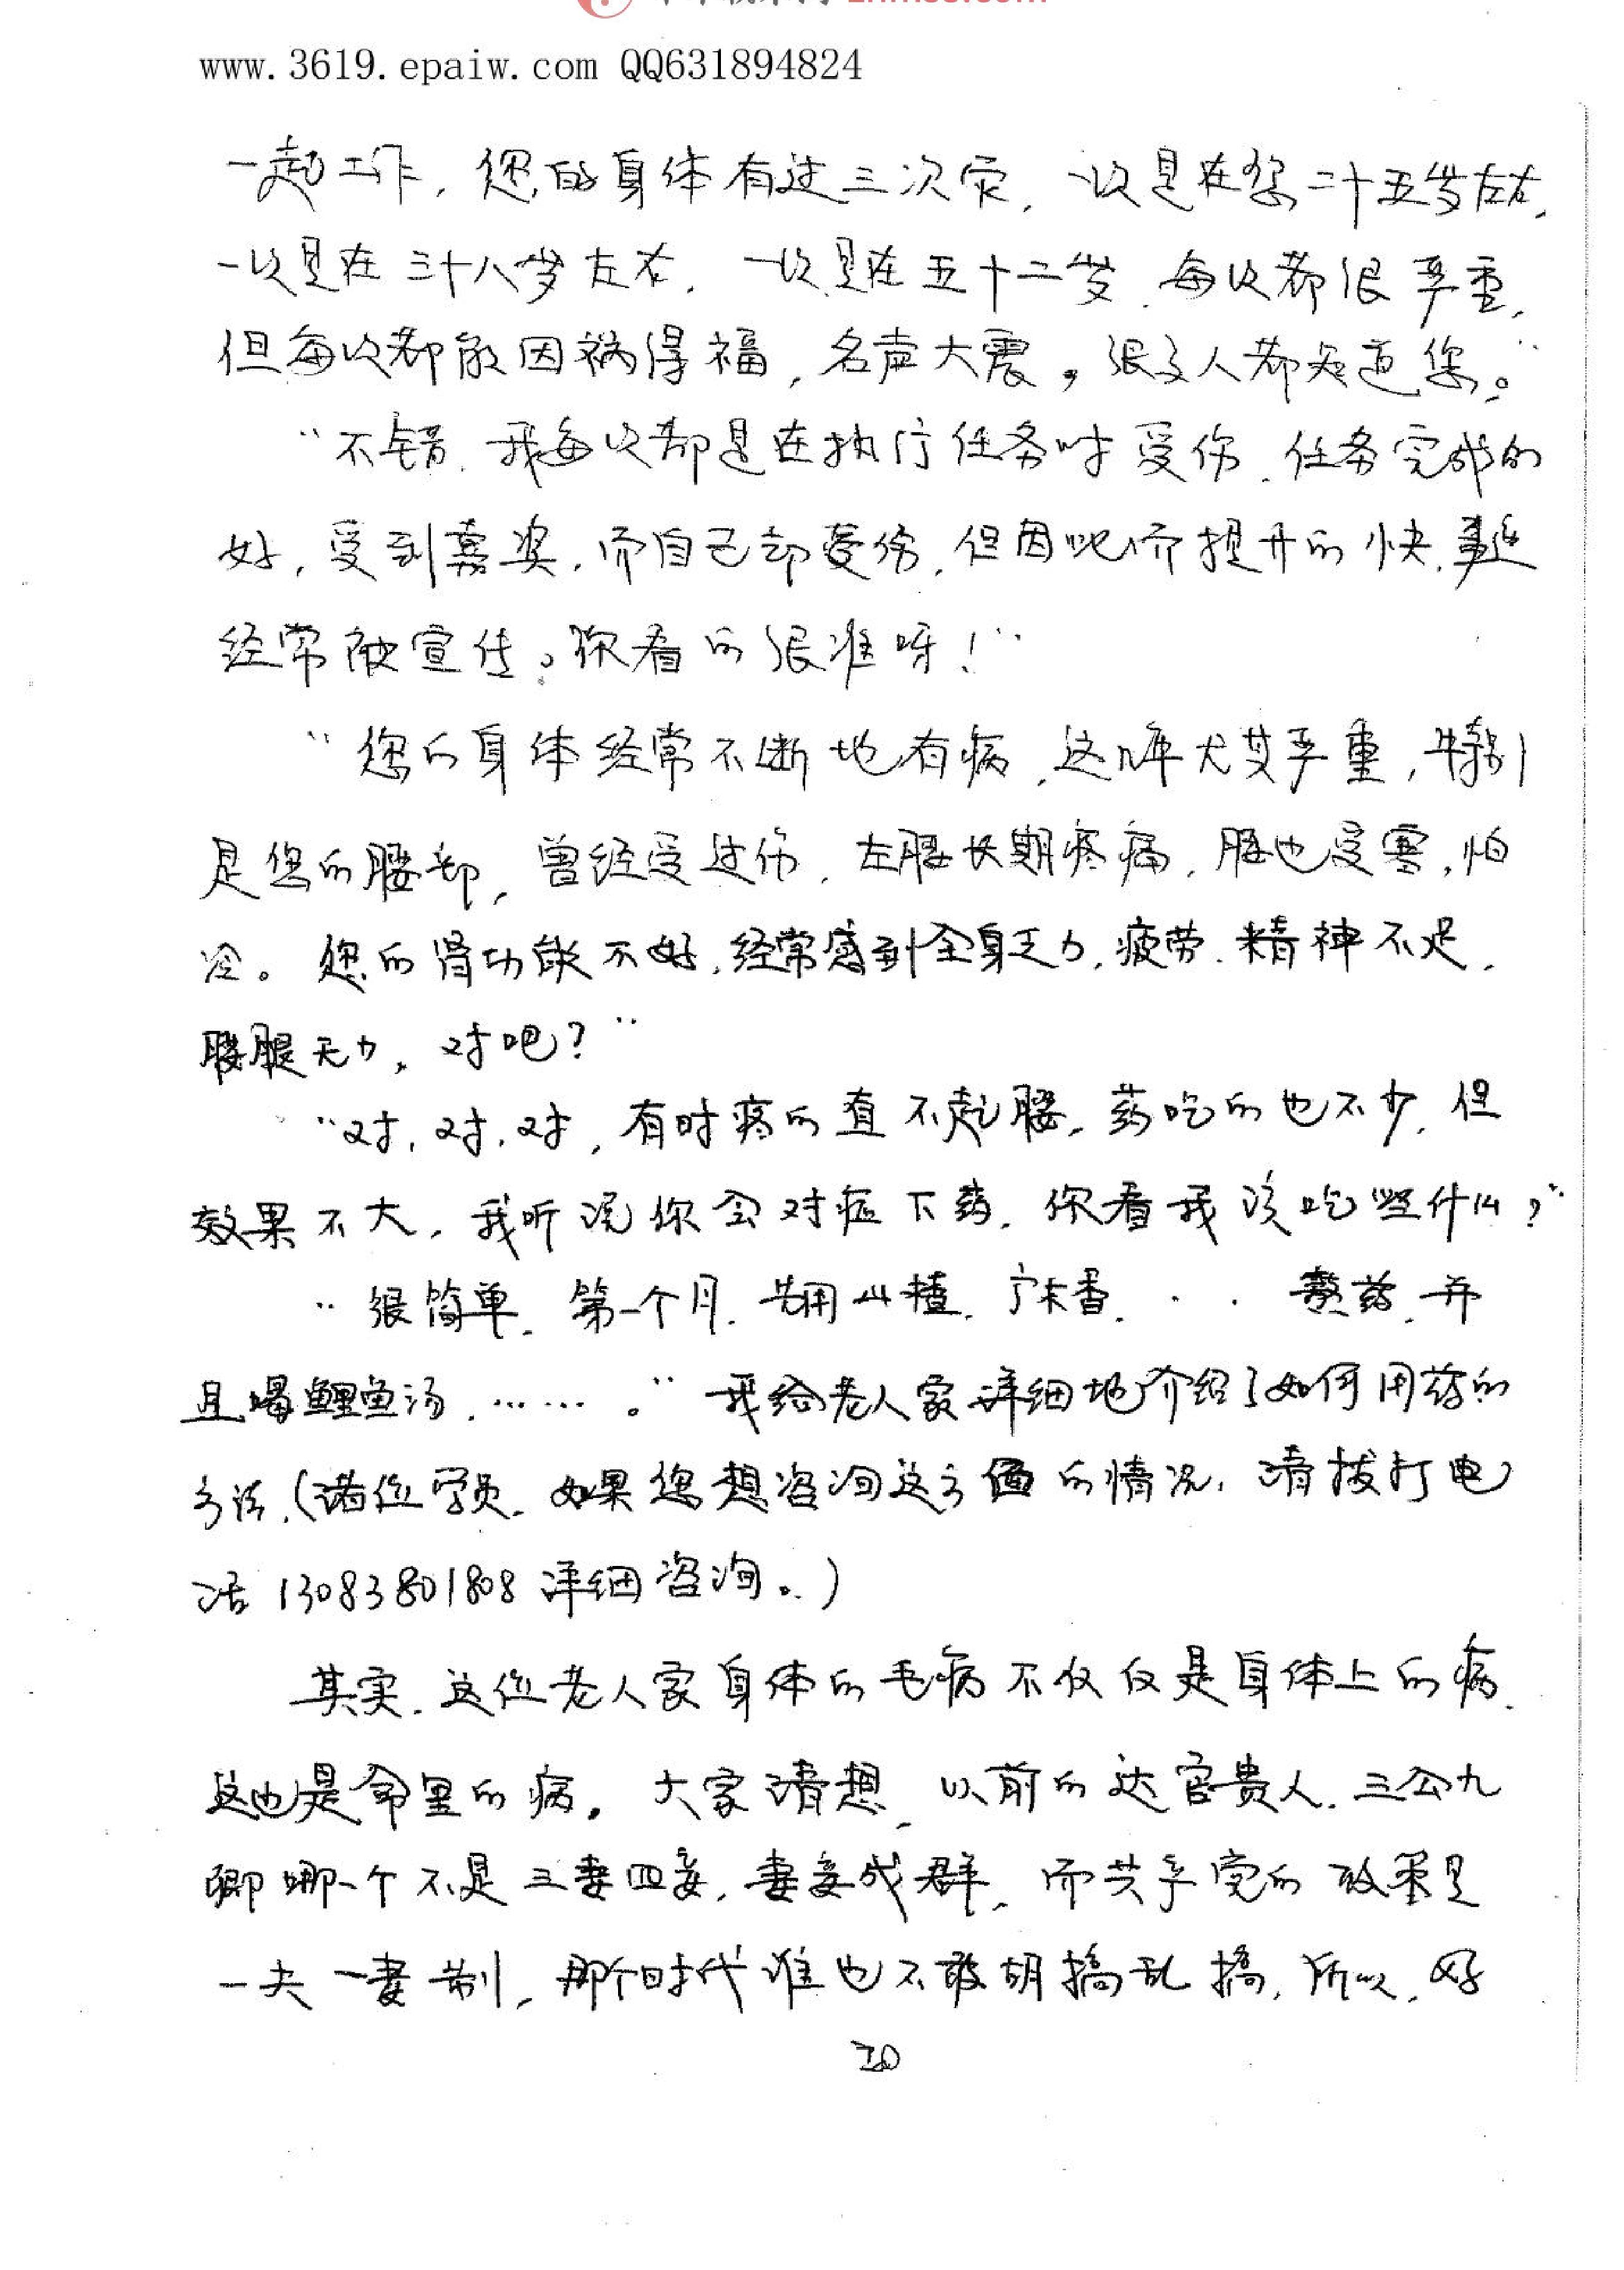 www.3619.epaiw.com QQ631894824
一起工作，您的身体有过三次灾，一次是在您二十五岁左右，
一次是在三十八岁左右，一次是在五十二岁，每次都很严重，
但每次都能因祸得福，名声大震，很多人都知道您。”
“不错，我每次都是在执行任务时受伤，任务完成的
好，受到嘉奖，而自己却受伤，但因此而提升的快，事迹
经常被宣传。你看的很准呀！”
“您的身体经常不断地有病，这几年尤其严重，特别
是您的腰部，曾经受过伤，左腰长期疼痛，腰也受寒，怕
冷。您的肾功能不好，经常感到全身乏力，疲劳，精神不足，
腰腿无力，对吧？”
“对，对，对，有时疼的直不起腰，药吃的也不少，但
效果不大，我听说你会对症下药，你看我该吃些什么？”
“很简单，第一个月，先用山楂，广木香，··熬药，并
且喝鲤鱼汤，……。”我给老人家详细地介绍了如何用药的
方法，（诸位学员，如果您想咨询这方面的情况，请拨打电
话13083801808详细咨询。）
其实，这位老人家身体的毛病不仅仅是身体上的病，
这也是命里的病。大家请想，以前的达官贵人，三公九
卿哪一个不是三妻四妾，妻妾成群，而共产党的政策是
一夫一妻制，那个时代谁也不敢胡搞乱搞，所以，好
20